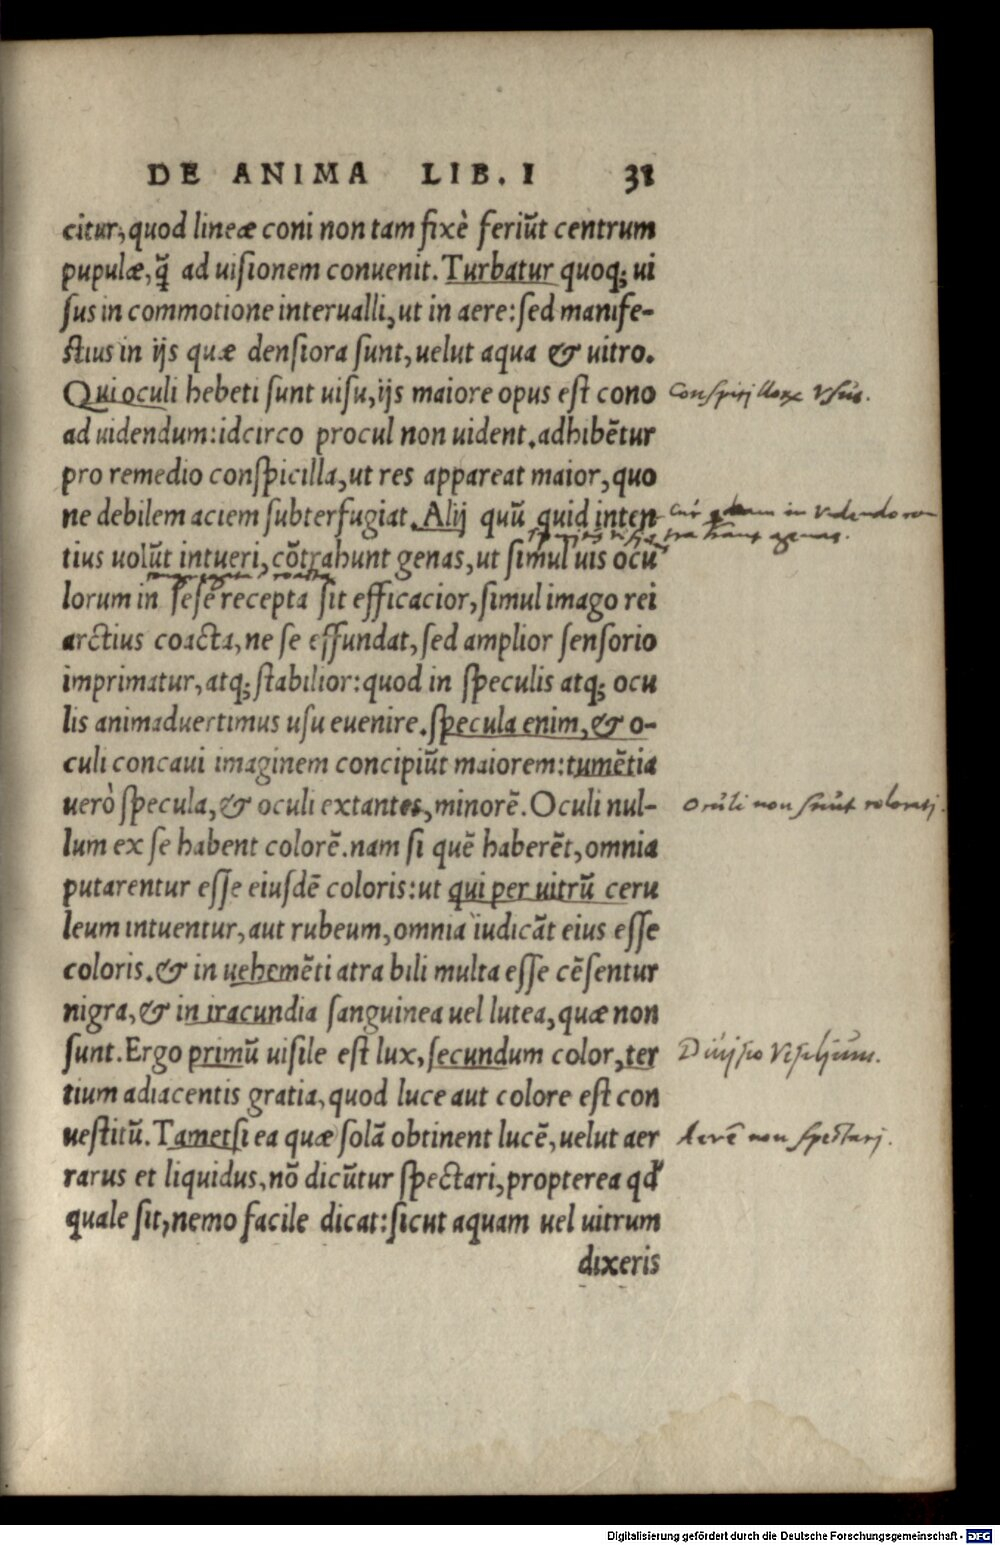 DE ANIMA LIB. I 31
citur, quod lineæ coni non tam fixè feriũt centrum
pupulæ, q̃ ad uisionem conuenit. Turbatur quoq; ui
sus in commotione interualli, ut in aere: sed manife-
stius in ijs quæ densiora sunt, uelut aqua & uitro.
Qui oculi hebeti sunt uisu, ijs maiore opus est cono
Conspicillorum Vsus.
ad uidendum: idcirco procul non uident. adhibẽtur
pro remedio conspicilla, ut res appareat maior, quo
ne debilem aciem subterfugiat. Alij quũ quid inten
Cur in videndo con
trahant genas.
tius uolũt intueri, cõtrahunt genas, ut simul uis ocu
lorum in sese recepta sit efficacior, simul imago rei
arctius coacta, ne se effundat, sed amplior sensorio
imprimatur, atq; stabilior: quod in speculis atq; ocu
lis animaduertimus usu euenire. specula enim, & o-
culi concaui imaginem concipiũt maiorem: tumẽtia
uerò specula, & oculi extantes, minorẽ. Oculi nul-
Oculi non sunt colorati.
lum ex se habent colorẽ. nam si quẽ haberẽt, omnia
putarentur esse eiusdẽ coloris: ut qui per uitrũ ceru
leum intuentur, aut rubeum, omnia iudicãt eius esse
coloris. & in uehemẽti atra bili multa esse cẽsentur
nigra, & in iracundia sanguinea uel lutea, quæ non
sunt. Ergo primũ uisile est lux, secundum color, ter
Diuisio Visilium.
tium adiacentis gratia, quod luce aut colore est con
uestitũ. Tametsi ea quæ solã obtinent lucẽ, uelut aer
Aerẽ non spectari.
rarus et liquidus, nõ dicũtur spectari, propterea qd'
quale sit, nemo facile dicat: sicut aquam uel uitrum
dixeris
Digitalisierung gefördert durch die Deutsche Forschungsgemeinschaft - DFG